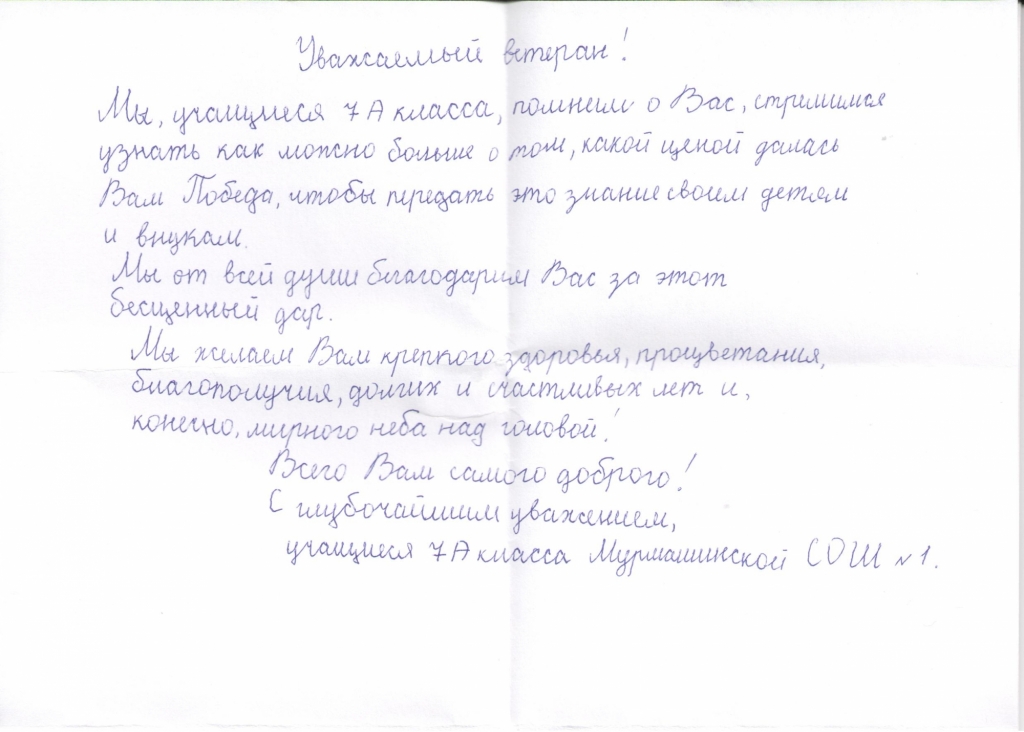 Уважаемый ветеран!
Мы, учащиеся 7А класса, помним о Вас, стремимся
узнать как можно больше о том, какой ценой далась
Вам Победа, чтобы передать это знание своим детям
и внукам.
Мы от всей души благодарим Вас за этот
бесценный дар.
Мы желаем Вам крепкого здоровья, процветания,
благополучия, долгих и счастливых лет и,
конечно, мирного неба над головой!
Всего Вам самого доброго!
С глубочайшим уважением,
учащиеся 7А класса Мурмашинской СОШ №1.